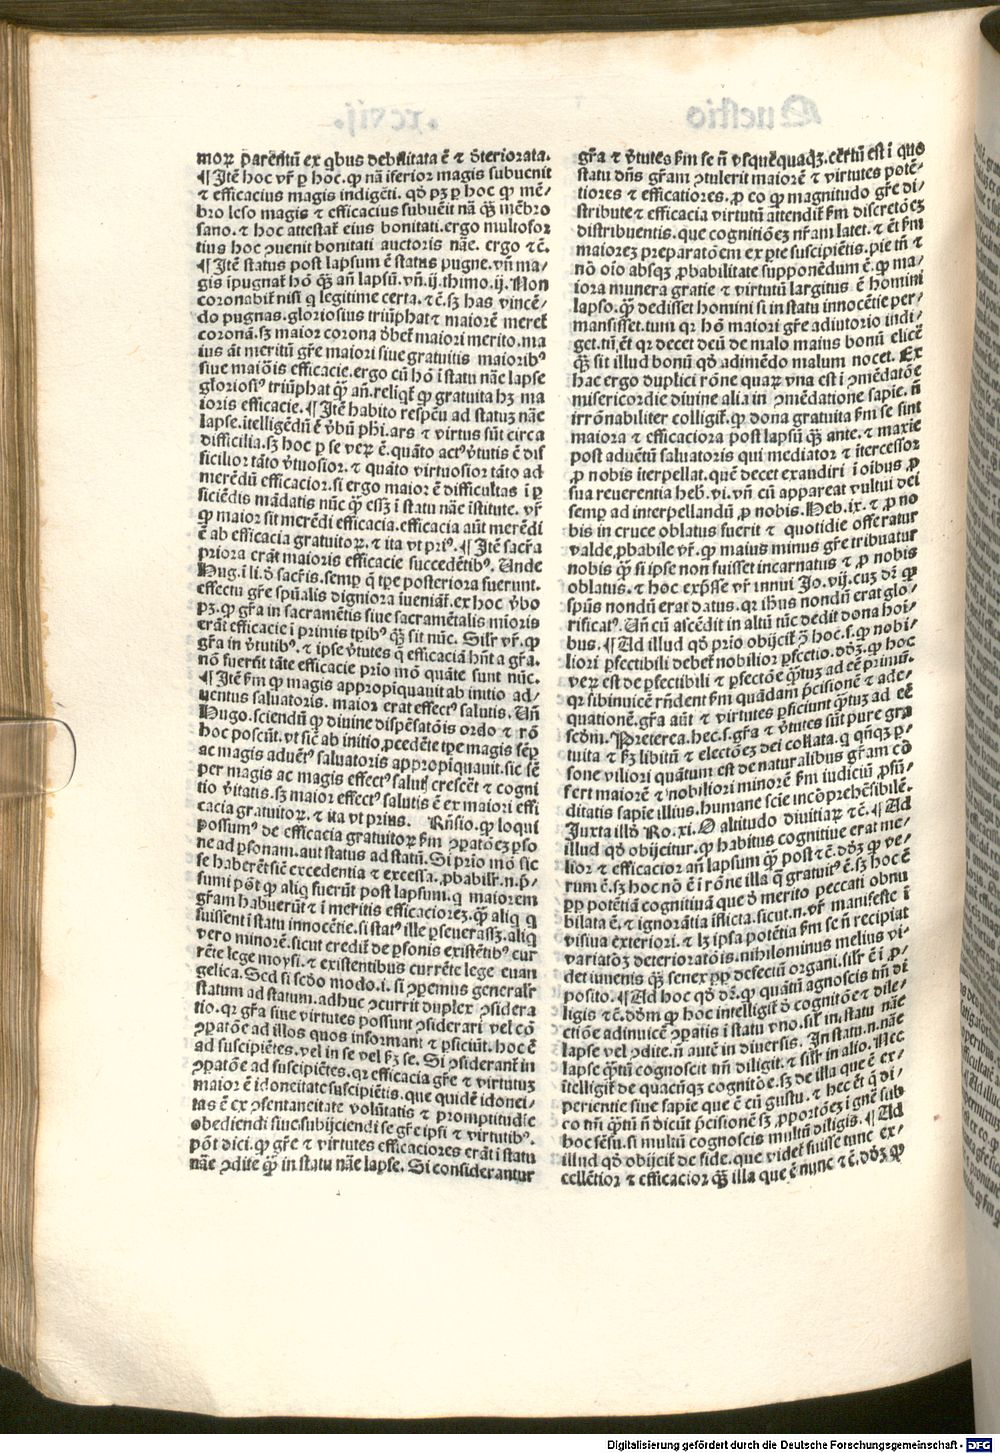 moꝝ parẽtũ ex qbus debilitata ẽ ⁊ đteriorata.
¶ Jtẽ hoc vr̃ ꝑ hoc. ꝙ nã iferior magis subuenit
⁊ efficacius magis indigẽti. qđ pꝫ ꝑ hoc ꝙ mẽ/
bro leso magis ⁊ efficacius subuẽit nã q̃ꝫ mẽbro
sano. ⁊ hoc attestat̃ eius bonitati. ergo multofor
tius hoc ꝯuenit bonitati auctoris nãe. ergo ⁊c̃.
¶ Jtẽ status post lapsum ẽ status pugne. vñ ma/
gis ĩpugnat̃ hõ q̃ꝫ añ lapsũ. vñ. ij. thimo. ij. Non
coronabit̃ nisi q legitime certa. ⁊c̃. sꝫ has vincẽ/
do pugnas. gloriosius triũphat ⁊ maiorẽ meret̃
coronã. sꝫ maior corona đbet̃ maiori merito. ma
ius añt meritũ gr̃e maiori siue gratuitis maioribꝰ
siue maiõis efficacie. ergo cũ hõ ĩ statu nãe lapse
gloriosiꝰ triũphat q̃ꝫ añ. reliqt̃ ꝙ gratuita hꝫ ma
ioris efficacie. ¶ Jtẽ habito respcũ ad statuꝫ nãe
lapse. ĩtelligẽdũ ẽ v̓bũ phi. ars ⁊ virtus sũt circa
difficilia. sꝫ hoc ꝑ se veꝝ ẽ. quãto actꝰ v̓tutis ẽ dif
ficilior tãto v̓tuosior. ⁊ quãto virtuosior tãto ad
merẽdũ efficacior. si ergo maior ẽ difficultas ĩ ꝑ
ficiẽdis mãdatis nũc q̃ꝫ essꝫ ĩ statu nãe ĩstitute. vr̃
ꝙ maior sit merẽdi efficacia. efficacia aũt merẽdi
ẽ ab efficacia gratuitoꝝ. ⁊ ita vt priꝰ. ¶ Jtẽ sacr̃a
priora erãt maioris efficacie succedẽtibꝰ. Unde
Hug. ĩ li. đ sacr̃is. semꝑ q̃ tꝑe posteriora fuerunt.
effectu gr̃e spũalis digniora ĩueniãt̃. ex hoc v̓bo
pꝫ. ꝙ gr̃a in sacramẽtis siue sacramẽtalis miõris
erãt efficacie ĩ primis tꝑibꝰ q̃ꝫ sit nũc. Silr̃ vr̃. ꝙ
gr̃a in v̓tutibꝰ. ⁊ ipse v̓tutes q̃ efficaciã hñt a gr̃a.
nõ fuerũt tãte efficacie prio mõ quãte sunt nũc.
¶ Jtẽ ẽm ꝙ magis appropĩquauit ab initio ad/
uentus saluatoris. maior erat effectꝰ salutis. Uñ
Hugo. sciendũ ꝙ divine dispẽsatõis ordo ⁊ rõ
hoc poscũt. vt sic̃ ab initio ꝓcedẽte tꝑe magis sẽꝑ
ac magis aduẽtꝰ saluatoris appropĩquauit. sic sẽ
per magis ac magis effectꝰ salutꝭ crescẽt ⁊ cogni
tio v̓itatis. sꝫ maior effectꝰ salutis ẽ ex maiori effi
cacia gratuitoꝝ. ⁊ ita vt prius. Rñsio. ꝙ loqui
possumꝰ de efficacia gratuitoꝝ ẽm ꝯparatõeꝫ ꝑso
ne ad ꝑsonam. aut status ad statũ. Si prio mõ sic
se haberẽt sic̃ excedentia ⁊ excessa. ꝓbabilr̃. n. p̃/
sumi põt ꝙ aliq fuerũt post lapsum. q maiorem
gr̃am habuerũt ⁊ ĩ meritis efficacioreꝫ. q̃ꝫ aliq q
fuissent ĩ statu innocẽtie. si statꝰ ille ꝑseuerassꝫ. aliq
vero minorẽ. sicut credit̃ de ꝑsonis existẽtibꝰ cur
rẽte lege moysi. ⁊ existentibus currẽte lege euan
gelica. Sed si scđo modo. i. si ꝯpemus generalr̃
statum ad statum. adhuc ꝯcurrit duplex ꝯsidera
tio. qr gr̃a siue virtutes possunt ꝯsiderari vel cõ
ꝯpatõe ad illos quos informant ⁊ ꝑficiũt. hoc ẽ
ad suscipiẽtes. vel in se vel ẽꝫ se. Si ꝯsiderant̃ in
ꝯpatõe ad suscipiẽtes. qr efficacia gr̃e ⁊ virtutuꝫ
maior ẽ idoneitate suscipiẽtis. que quidẽ idonei/
tas ẽ ex ꝯsentaneitate volũtatis ⁊ promptitudie
obediendi siue subijciendi se gr̃e ipsi ⁊ virtutibꝰ.
põt dici. ꝙ gr̃e ⁊ virtutes efficaciores erãt ĩ statu
nãe ꝯdite q̃ꝫ in statu nãe lapse. Si considerantur
gr̃a ⁊ v̓tutes ẽm se ñ vsquequaqꝫ. certũ est ĩ quo
statu dñs gr̃am ꝯtulerit maiorẽ ⁊ virtutes potẽ/
tiores ⁊ efficatiores. ꝓ eo ꝙ magnitudo gr̃e di/
stribute ⁊ efficacia virtutũ attendit̃ ẽm discretõeꝫ
distribuentis. que cognitõeꝫ nr̃am latet. ⁊ ẽt ẽm
maiorez preparatõem ex ꝑte suscipiẽtis. pie tñ ⁊
nõ oĩo absqꝫ ꝓbabilitate supponẽdum ẽ. ꝙ ma/
iora munera gratie ⁊ virtutũ largitus ẽ hõmini
lapso. q̃ꝫ dedisset homini si in statu innocẽtie per/
mansisset. tum qr hõ maiori gr̃e adiutorio indi/
get. tũ ẽt qr decet deũ de malo maius bonũ elicẽ
q̃ꝫ sit illud bonũ qđ adimẽdo malum nocet. Ex
hac ergo duplici rõne quaꝝ vna est ĩ ꝯmẽdatõe
misericordie diuine alia in ꝯmẽdatione sapie. ñ
irrõnabiliter colligit̃. ꝙ dona gratuita ẽm se sint
maiora ⁊ efficaciora post lapsũ q̃ꝫ ante. ⁊ maxie
post aduẽtũ saluatoris qui mediator ⁊ ĩtercessor
ꝓ nobis ĩterpellat. quẽ decet exaudiri ĩ oibus ꝓ
sua reuerentia heb. vi. vñ cũ appareat vultui dei
semꝑ ad interpellandũ ꝓ nobis. Heb. ix. ⁊ ꝓ no
bis in cruce oblatus fuerit ⁊ quotidie offeratur
valde ꝓbabile vr̃. ꝙ maius minus gr̃e tribuatur
nobis q̃ꝫ si ipse non fuisset incarnatus ⁊ ꝓ nobis
oblatus. ⁊ hoc exp̃sse vr̃ innui Jo. vij. cuꝫ dr̃ ꝙ
spũs nondũ erat datus. qr ihũs nondũ erat glo/
rificatꝰ. Uñ cũ ascẽdit in altũ tũc dedit dona hoĩ/
bus. ¶ Ad illud qđ prio obijcit̃ ꝯ̃ hoc. s. ꝙ nobi/
liori ꝑfectibili debet̃ nobilior ꝑfectio. dõꝫ. ꝙ hoc
veꝝ est de ꝑfectibili ⁊ ꝑfectõe q̃ꝫtuꝫ ad eẽ primũ.
qr sibinuicẽ rñdent ẽm quãdam p̃cisionẽ ⁊ ade/
quationẽ. gr̃a aũt ⁊ virtutes ꝑficiunt q̃ꝫtuꝫ ad eẽ
scđm. Preterea. hec. s. gr̃a ⁊ v̓tutes sũt pure gra
tuita ⁊ ẽꝫ libitũ ⁊ electõeꝫ dei collata. q qñqꝫ ꝑ/
sone viliori quãtum est de naturalibus gr̃am cõ
fert maiorẽ ⁊ nobiliori minorẽ ẽm iudiciũ ꝓfũ/
ditatis sapie illius. humane scie incõprehẽsibilẽ.
Juxta illđ Ro. xi. O altitudo diuitiaꝝ ⁊c̃. ¶ Ad
illud qđ obijcitur. ꝙ habitus cognitiue erat me/
lior ⁊ efficacior añ lapsum q̃ꝫ post ⁊c̃. dõꝫ ꝙ ve/
rum ẽ. sꝫ hoc nõ ẽ ĩ rõne illa q̃ gratuitꝰ ẽ. sꝫ hoc ẽ
ꝓꝑ potẽtiã cognitiuã que đ merito peccati obnu
bilata ẽ. ⁊ ignorãtia ĩflicta. sicut. n. vr̃ manifeste ĩ
visiua exteriori. ⁊ lꝫ ipsa potẽtia ẽm se ñ recipiat
variatõꝫ deterioratõis. nihilominus melius vi/
det iuuenis q̃ꝫ senex ꝓꝑ defectũ organi. silr̃ ẽ ĩ ꝓ/
posito. ¶ Ad hoc qđ dr̃. ꝙ quãtũ agnoscis tm̃ di
ligis ⁊c̃. đõm ꝙ hoc intelligit̃ đ cognitõe ⁊ dile/
ctiõe adinuicẽ ꝯpatis ĩ statu vno. silr̃. in statu nãe
lapse vel ꝯdite. ñ autẽ in diuersis. In statu. n. nãe
lapse q̃ꝫtũ cognoscit tm̃ diligit. ⁊ silr̃ in alio. Nec
ĩtelligit̃ de quacũqꝫ cognitõe. sꝫ de illa que ẽ ex/
perientie siue sapie que ẽ cũ gustu. ⁊ hec ẽt q̃ di/
co tm̃ q̃ꝫtũ ñ dicũt p̃cisionẽ sꝫ ꝓportõeꝫ ĩ gñe sub
hoc sẽsu. si multũ cognoscis multũ diligis. ¶ Ad
illud qđ obijcit̃ de fide. que videt̃ fuisse tunc ex/
cellẽtior ⁊ efficacior q̃ꝫ illa que ẽ nunc ⁊c̃. dõꝫ ꝙ
Digitalisierung gefördert durch die Deutsche Forschungsgemeinschaft - DFG